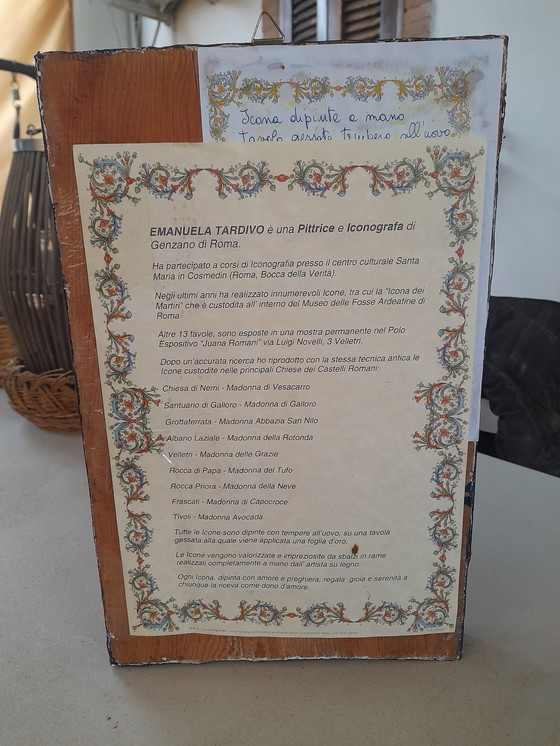 Icona dipinta a mano
Tavola gessata tempera all'uovo
EMANUELA TARDIVO è una Pittrice e Iconografa di
Genzano di Roma.
Ha partecipato a corsi di Iconografia presso il centro culturale Santa
Maria in Cosmedin (Roma, Bocca della Verità).
Negli ultimi anni ha realizzato innumerevoli Icone, tra cui la "Icona dei
Martiri" che è custodita all' interno del Museo delle Fosse Ardeatine di
Roma.
Altre 13 tavole, sono esposte in una mostra permanente nel Polo
Espositivo "Juana Romani" via Luigi Novelli, 3 Velletri.
Dopo un'accurata ricerca ho riprodotto con la stessa tecnica antica le
Icone custodite nelle principali Chiese dei Castelli Romani:
Chiesa di Nemi - Madonna di Vesacarro
Santuario di Galloro - Madonna di Galloro
Grottaferrata - Madonna Abbazia San Nilo
Albano Laziale - Madonna della Rotonda
Velletri - Madonna delle Grazie
Rocca di Papa - Madonna del Tufo
Rocca Priora - Madonna della Neve
Frascati - Madonna di Capocroce
Tivoli - Madonna Avocada
Tutte le Icone sono dipinte con tempere all'uovo, su una tavola
gessata alla quale viene applicata una foglia d'oro.
Le Icone vengono valorizzate e impreziosite da sbalzi in rame
realizzati completamente a mano dall' artista su legno.
Ogni Icona, dipinta con amore e preghiera, regala gioia e serenità a
chiunque la riceve come dono d'amore.